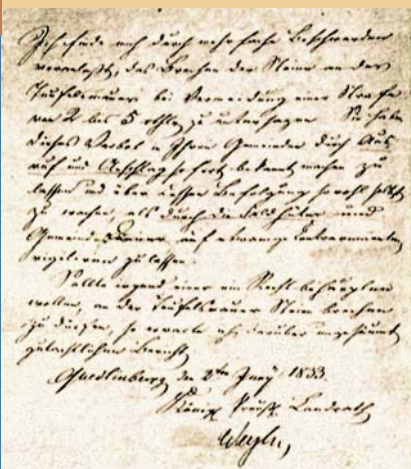 Ich finde mich durch mehrfache Beschwerden
veranlaßt, das Brechen der Steine an der
Teufelsmauer bei Vermeidung einer Strafe
von 2 bis 5 rthlr zu untersagen Sie haben
dieses Verbot in Ihren Gemeinden durch Aus
ruf und Anschlag sofort bekannt machen zu
lassen und über dessen Befolgung sowohl selbst
zu wachen, als durch die Feldhüter und
Gemeindediener auf etwanige Contravenienten
vigiliren zu lassen.
Sollte irgend einer ein Recht behaupten
wollen, an der Teufelsmauer Steine brechen
zu dürfen, so erwarte ich darüber ungesäumt
gutachtlichen Bericht.
Quedlinburg den 2ten Juny 1833.
Königl Preuß. Landrath
Weyhe